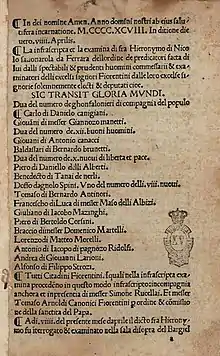 ¶ In dei nomine Amen. Anno domini nostri ab eius salu
tifera incarnatione. M.CCCC.XCVIII. In ditione die
vero.viii.Aprilis.
¶ La infrascripta e la examina di fra Hieronymo di Nico
lo sauonarola da Ferrara dellordine de predicatori facta di
lui dalli spectabili & prudenti huomini commessarii & exa
minatori delli excelsi signori Fiorentini dalle loro excelse si
gnorie solennemente electi & deputati cioe.
SIC TRANSIT GLORIA MVNDI.
Dua del numero deghonfalonieri di compagnia del popolo
¶ Carlo di Daniello canigiani.
Giouanni di messer Giannozo manetti.
Dua del numero de.xii.buoni huomini.
Giouanni di Antonio canacci
Baldassarri di Bernardo brunetti.
Dua del numero de.x.nuoui di liberta et pace.
Piero di Daniello delli Alberti.
Benedecto di Tanai de nerli.
Dosso dagnolo Spini. Uno del numero delli.viii.nuoui.
Tomaso di Bernardo Antinori.
Francescho di Luca di messer Maso delli Albizi
Giuliano di Iacobo Mazinghi.
Piero di Bertoldo Corsini.
Braccio di messer Domenico Martelli.
Lorenzo di Matteo Morelli.
Antonio di Iacopo di pagnozo Ridolfi.
Andrea di Giouanni Larioni.
Alfonso di Filippo Strozi.
¶ Tutti Citadini Fiorentini. Iquali nella infrascripta exami
na procedeno in questo modo infrascripto: incompagnia
anchora et in presentia di messer Simone Rucellai. Et messer
Tomaso Arnoldi Canonici Fiorentini per ordine & comissio
ne della sanctita del Papa.
¶ Adi.viiii.del presente mese daprile il dicto fra Hierony
mo fu iterrogato & examinato nella sala disopra del Bargiel
a